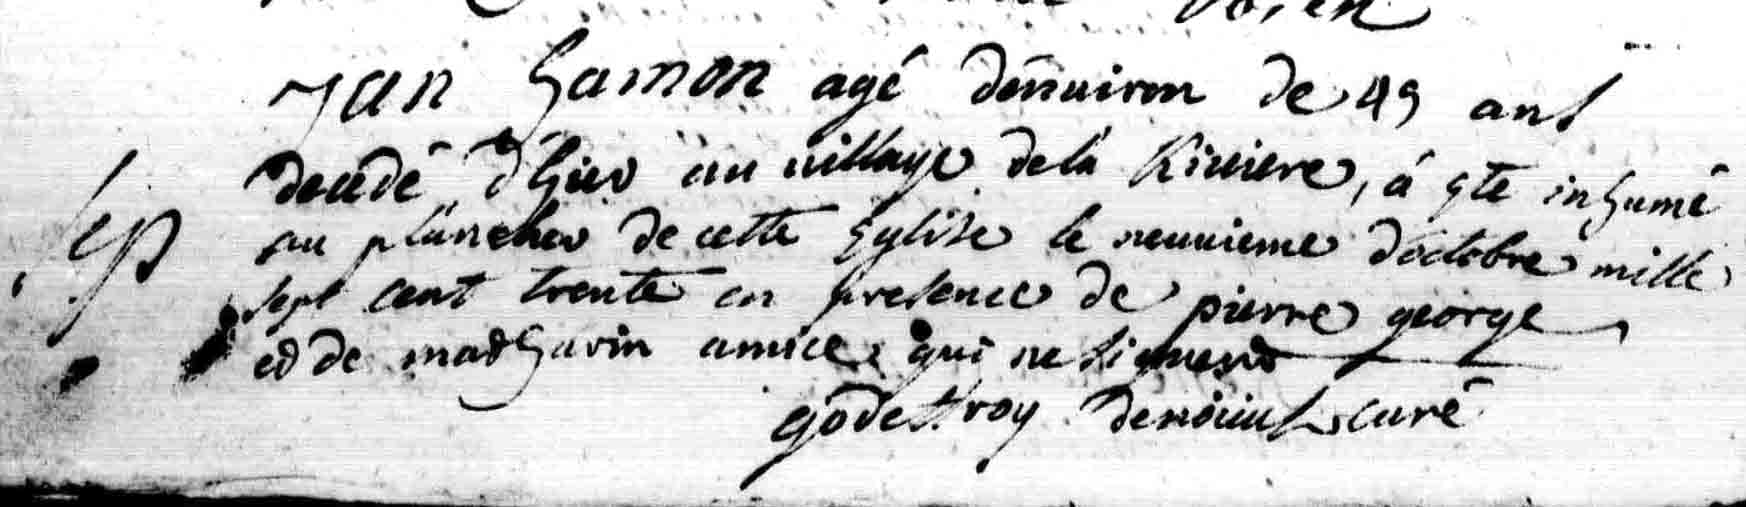 Jan hamon agé dénuiron de 49 ans
decedé d'hier au uillage de la Riuiere, á éte inhumé
au plancher de cette Eglise le neuuieme d'octobre mille
sept cent trente en presence de pierre george
et de mathurin amice qui ne signent
godeffroy curé